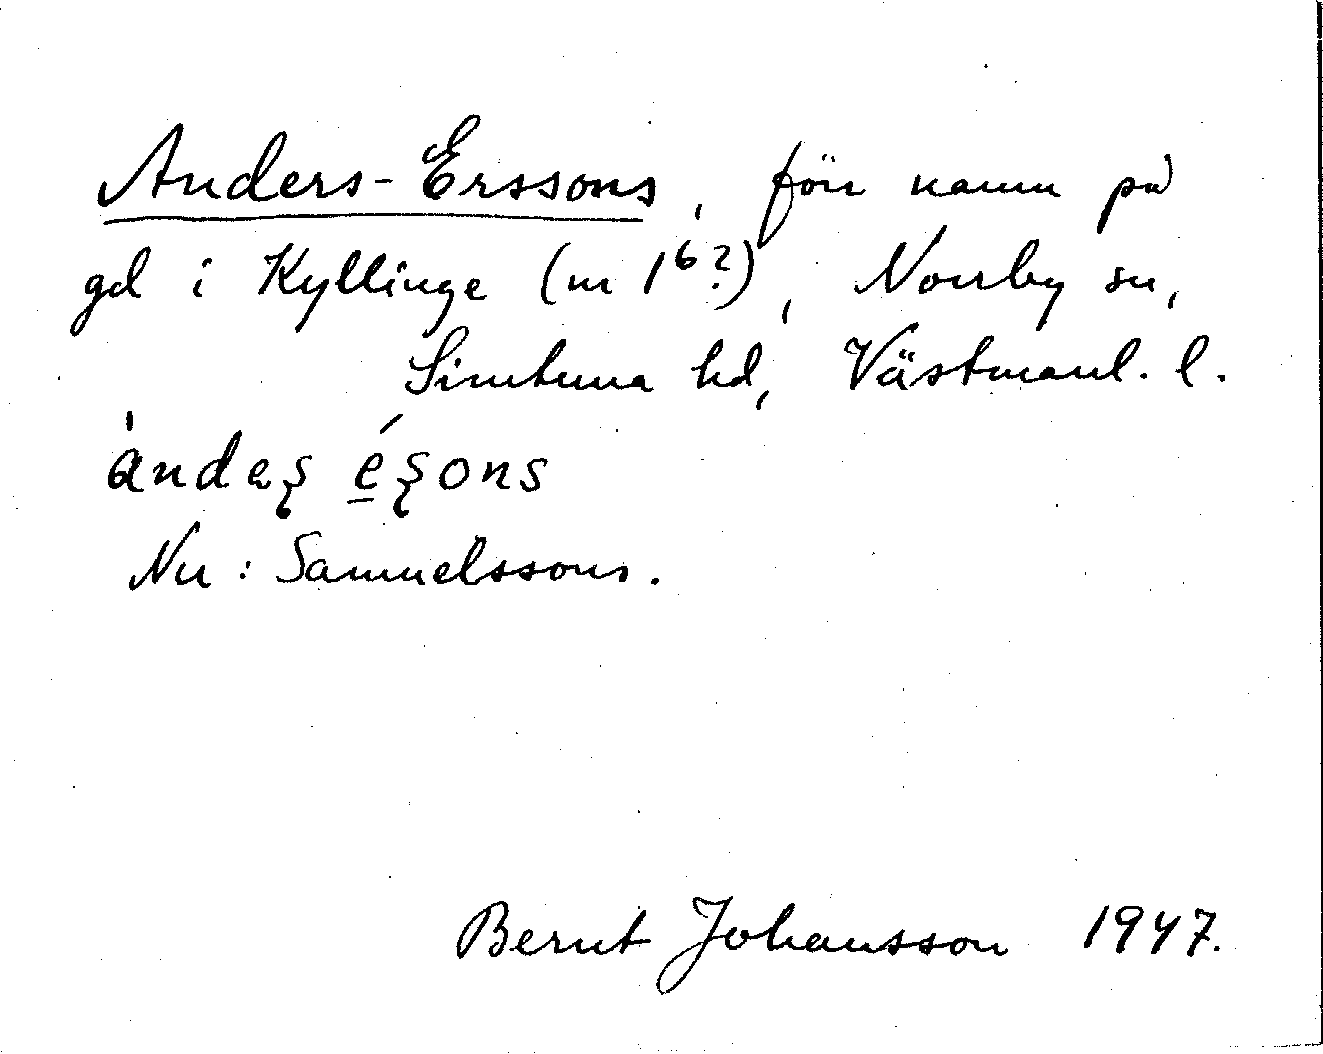 Anders-Erssons, förr namn på
gd i Kyllinge (nr 1⁶?), Norrby sn,
Simtuna hd, Västmanl. l.
ándaʂ é̱ʂons
Nu: Samuelssons.
Bernt Johansson 1947.